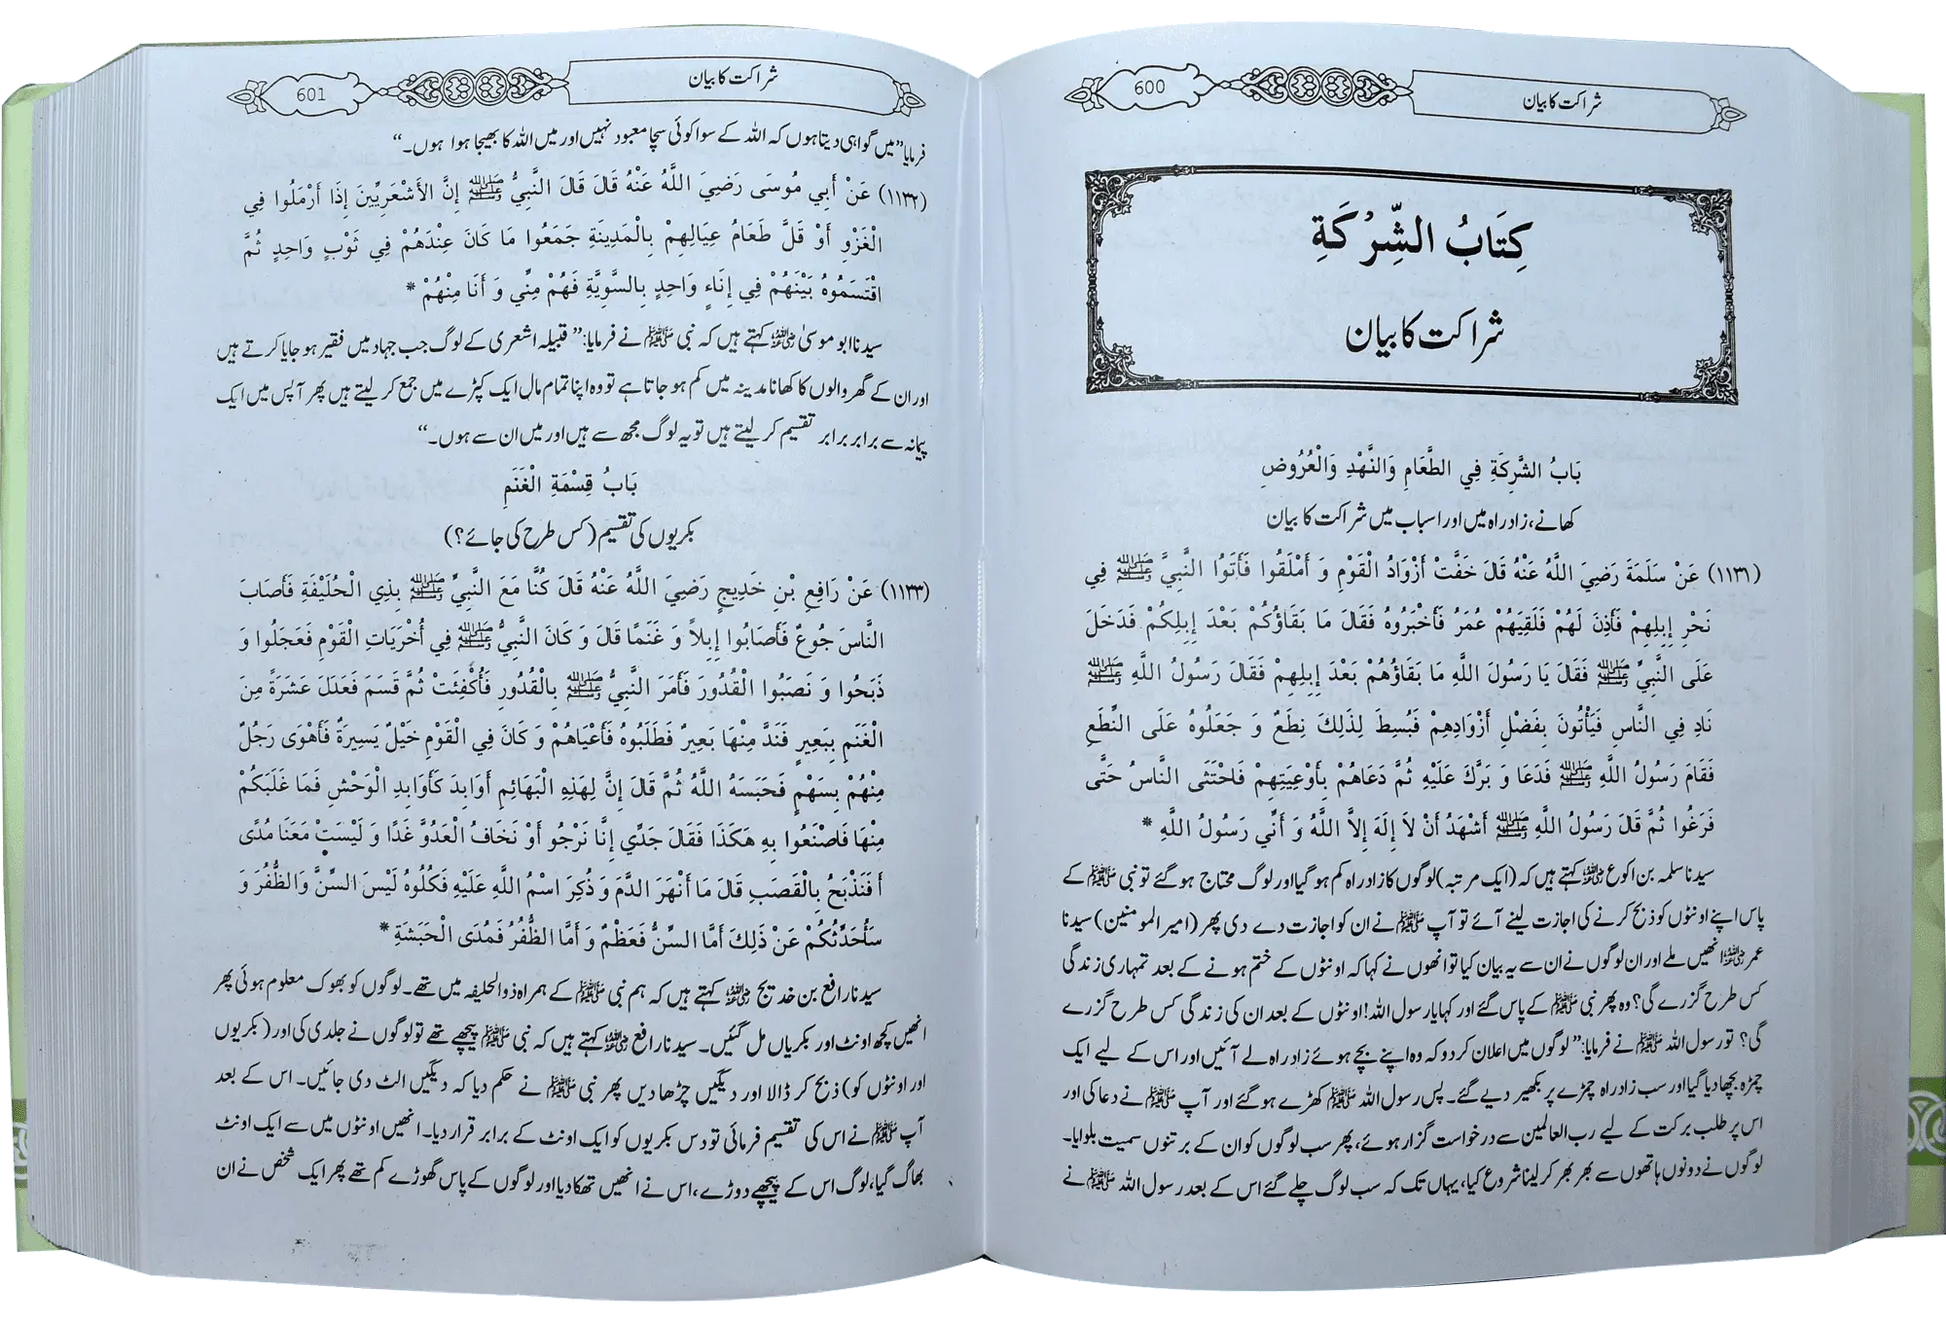 600
شراکت کا بیان
كِتَابُ الشِّرْكَةِ
شراکت کا بیان
بَابُ الشَّرِكَةِ فِي الطَّعَامِ وَالنَّهْدِ وَالْعُرُوضِ
کھانے، زادراہ میں اور اسباب میں شراکت کا بیان
(١١٣١) عَنْ سَلَمَةَ رَضِيَ اللَّهُ عَنْهُ قَالَ خَفَّتْ أَزْوَادُ الْقَوْمِ وَ أَمْلَقُوا فَأَتَوُا النَّبِيَّ ﷺ فِي
نَحْرِ إِبِلِهِمْ فَأَذِنَ لَهُمْ فَلَقِيَهُمْ عُمَرُ فَأَخْبَرُوهُ فَقَالَ مَا بَقَاؤُكُمْ بَعْدَ إِبِلِكُمْ فَدَخَلَ
عَلَى النَّبِيِّ ﷺ فَقَالَ يَا رَسُولَ اللَّهِ مَا بَقَاؤُهُمْ بَعْدَ إِبِلِهِمْ فَقَالَ رَسُولُ اللَّهِ ﷺ
نَادِ فِي النَّاسِ فَيَأْتُونَ بِفَضْلِ أَزْوَادِهِمْ فَبُسِطَ لِذَلِكَ نِطَعٌ وَ جَعَلُوهُ عَلَى النِّطَعِ
فَقَامَ رَسُولُ اللَّهِ ﷺ فَدَعَا وَ بَرَّكَ عَلَيْهِ ثُمَّ دَعَاهُمْ بِأَوْعِيَتِهِمْ فَاحْتَثَى النَّاسُ حَتَّى
فَرَغُوا ثُمَّ قَالَ رَسُولُ اللَّهِ ﷺ أَشْهَدُ أَنْ لاَ إِلَهَ إِلاَّ اللَّهُ وَ أَنِّي رَسُولُ اللَّهِ *
سیدنا سلمہ بن اکوع ؓ کہتے ہیں کہ (ایک مرتبہ) لوگوں کا زادراہ کم ہو گیا اور لوگ محتاج ہو گئے تو نبی ﷺ کے
پاس اپنے اونٹوں کو ذبح کرنے کی اجازت لینے آئے تو آپ ﷺ نے ان کو اجازت دے دی پھر (امیر المومنین) سیدنا
عمر ؓ انھیں ملے اور ان لوگوں نے ان سے یہ بیان کیا تو انھوں نے کہا کہ اونٹوں کے ختم ہونے کے بعد تمہاری زندگی
کس طرح گزرے گی؟ وہ پھر نبی ﷺ کے پاس گئے اور کہا یا رسول اللہ! اونٹوں کے بعد ان کی زندگی کس طرح گزرے
گی؟ تو رسول اللہ ﷺ نے فرمایا: ”لوگوں میں اعلان کر دو کہ وہ اپنے بچے ہوئے زادراہ لے آئیں اور اس کے لیے ایک
چمڑہ بچھا دیا گیا اور سب زادراہ چمڑے پر بکھیر دیے گئے۔ پس رسول اللہ ﷺ کھڑے ہو گئے اور آپ ﷺ نے دعا کی اور
اس پر طلب برکت کے لیے رب العالمین سے درخواست گزار ہوئے، پھر سب لوگوں کو ان کے برتنوں سمیت بلوایا۔
لوگوں نے دونوں ہاتھوں سے بھر بھر کر لینا شروع کیا، یہاں تک کہ سب لوگ چلے گئے اس کے بعد رسول اللہ ﷺ نے
601
شراکت کا بیان
فرمایا ”میں گواہی دیتا ہوں کہ اللہ کے سوا کوئی سچا معبود نہیں اور میں اللہ کا بھیجا ہوا ہوں۔“
(١١٣٢) عَنْ أَبِي مُوسَى رَضِيَ اللَّهُ عَنْهُ قَالَ قَالَ النَّبِيُّ ﷺ إِنَّ الأَشْعَرِيِّينَ إِذَا أَرْمَلُوا فِي
الْغَزْوِ أَوْ قَلَّ طَعَامُ عِيَالِهِمْ بِالْمَدِينَةِ جَمَعُوا مَا كَانَ عِنْدَهُمْ فِي ثَوْبٍ وَاحِدٍ ثُمَّ
اقْتَسَمُوهُ بَيْنَهُمْ فِي إِنَاءٍ وَاحِدٍ بِالسَّوِيَّةِ فَهُمْ مِنِّي وَ أَنَا مِنْهُمْ *
سیدنا ابو موسیٰ ؓ کہتے ہیں کہ نبی ﷺ نے فرمایا: ”قبیلہ اشعری کے لوگ جب جہاد میں فقیر ہو جایا کرتے ہیں
اور ان کے گھر والوں کا کھانا مدینہ میں کم ہو جاتا ہے تو وہ اپنا تمام مال ایک کپڑے میں جمع کر لیتے ہیں پھر آپس میں ایک
پیمانہ سے برابر برابر تقسیم کر لیتے ہیں تو یہ لوگ مجھ سے ہیں اور میں ان سے ہوں۔“
بَابُ قِسْمَةِ الْغَنَمِ
بکریوں کی تقسیم (کس طرح کی جائے؟)
(١١٣٣) عَنْ رَافِعِ بْنِ خَدِيجٍ رَضِيَ اللَّهُ عَنْهُ قَالَ كُنَّا مَعَ النَّبِيِّ ﷺ بِذِي الْحُلَيْفَةِ فَأَصَابَ
النَّاسَ جُوعٌ فَأَصَابُوا إِبِلاً وَ غَنَمًا قَالَ وَ كَانَ النَّبِيُّ ﷺ فِي أُخْرَيَاتِ الْقَوْمِ فَعَجَلُوا وَ
ذَبَحُوا وَ نَصَبُوا الْقُدُورَ فَأَمَرَ النَّبِيُّ ﷺ بِالْقُدُورِ فَأُكْفِئَتْ ثُمَّ قَسَمَ فَعَدَلَ عَشَرَةً مِنَ
الْغَنَمِ بِبَعِيرٍ فَنَدَّ مِنْهَا بَعِيرٌ فَطَلَبُوهُ فَأَعْيَاهُمْ وَ كَانَ فِي الْقَوْمِ خَيْلٌ يَسِيرَةٌ فَأَهْوَى رَجُلٌ
مِنْهُمْ بِسَهْمٍ فَحَبَسَهُ اللَّهُ ثُمَّ قَالَ إِنَّ لِهَذِهِ الْبَهَائِمِ أَوَابِدَ كَأَوَابِدِ الْوَحْشِ فَمَا غَلَبَكُمْ
مِنْهَا فَاصْنَعُوا بِهِ هَكَذَا فَقَالَ جَدِّي إِنَّا نَرْجُو أَوْ نَخَافُ الْعَدُوَّ غَدًا وَ لَيْسَتْ مَعَنَا مُدًى
أَ فَنَذْبَحُ بِالْقَصَبِ قَالَ مَا أَنْهَرَ الدَّمَ وَ ذُكِرَ اسْمُ اللَّهِ عَلَيْهِ فَكُلُوهُ لَيْسَ السِّنَّ وَالظُّفُرَ وَ
سَأُحَدِّثُكُمْ عَنْ ذَلِكَ أَمَّا السِّنُّ فَعَظْمٌ وَ أَمَّا الظُّفُرُ فَمُدَى الْحَبَشَةِ *
سیدنا رافع بن خدیج ؓ کہتے ہیں کہ ہم نبی ﷺ کے ہمراہ ذوالحلیفہ میں تھے۔ لوگوں کو بھوک معلوم ہوئی پھر
انھیں کچھ اونٹ اور بکریاں مل گئیں۔ سیدنا رافع ؓ کہتے ہیں کہ نبی ﷺ پیچھے تھے تو لوگوں نے جلدی کی اور (بکریوں
اور اونٹوں کو) ذبح کر ڈالا اور دیگیں چڑھا دیں پھر نبی ﷺ نے حکم دیا کہ دیگیں الٹ دی جائیں۔ اس کے بعد
آپ ﷺ نے اس کی تقسیم فرمائی تو دس بکریوں کو ایک اونٹ کے برابر قرار دیا۔ انھیں اونٹوں میں سے ایک اونٹ
بھاگ گیا، لوگ اس کے پیچھے دوڑے، اس نے انھیں تھکا دیا اور لوگوں کے پاس گھوڑے کم تھے پھر ایک شخص نے ان